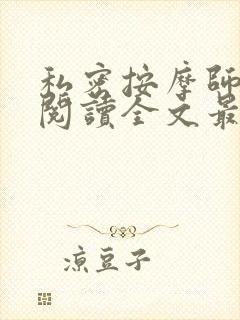 私密按摩師
閱讀全文最
凉豆子